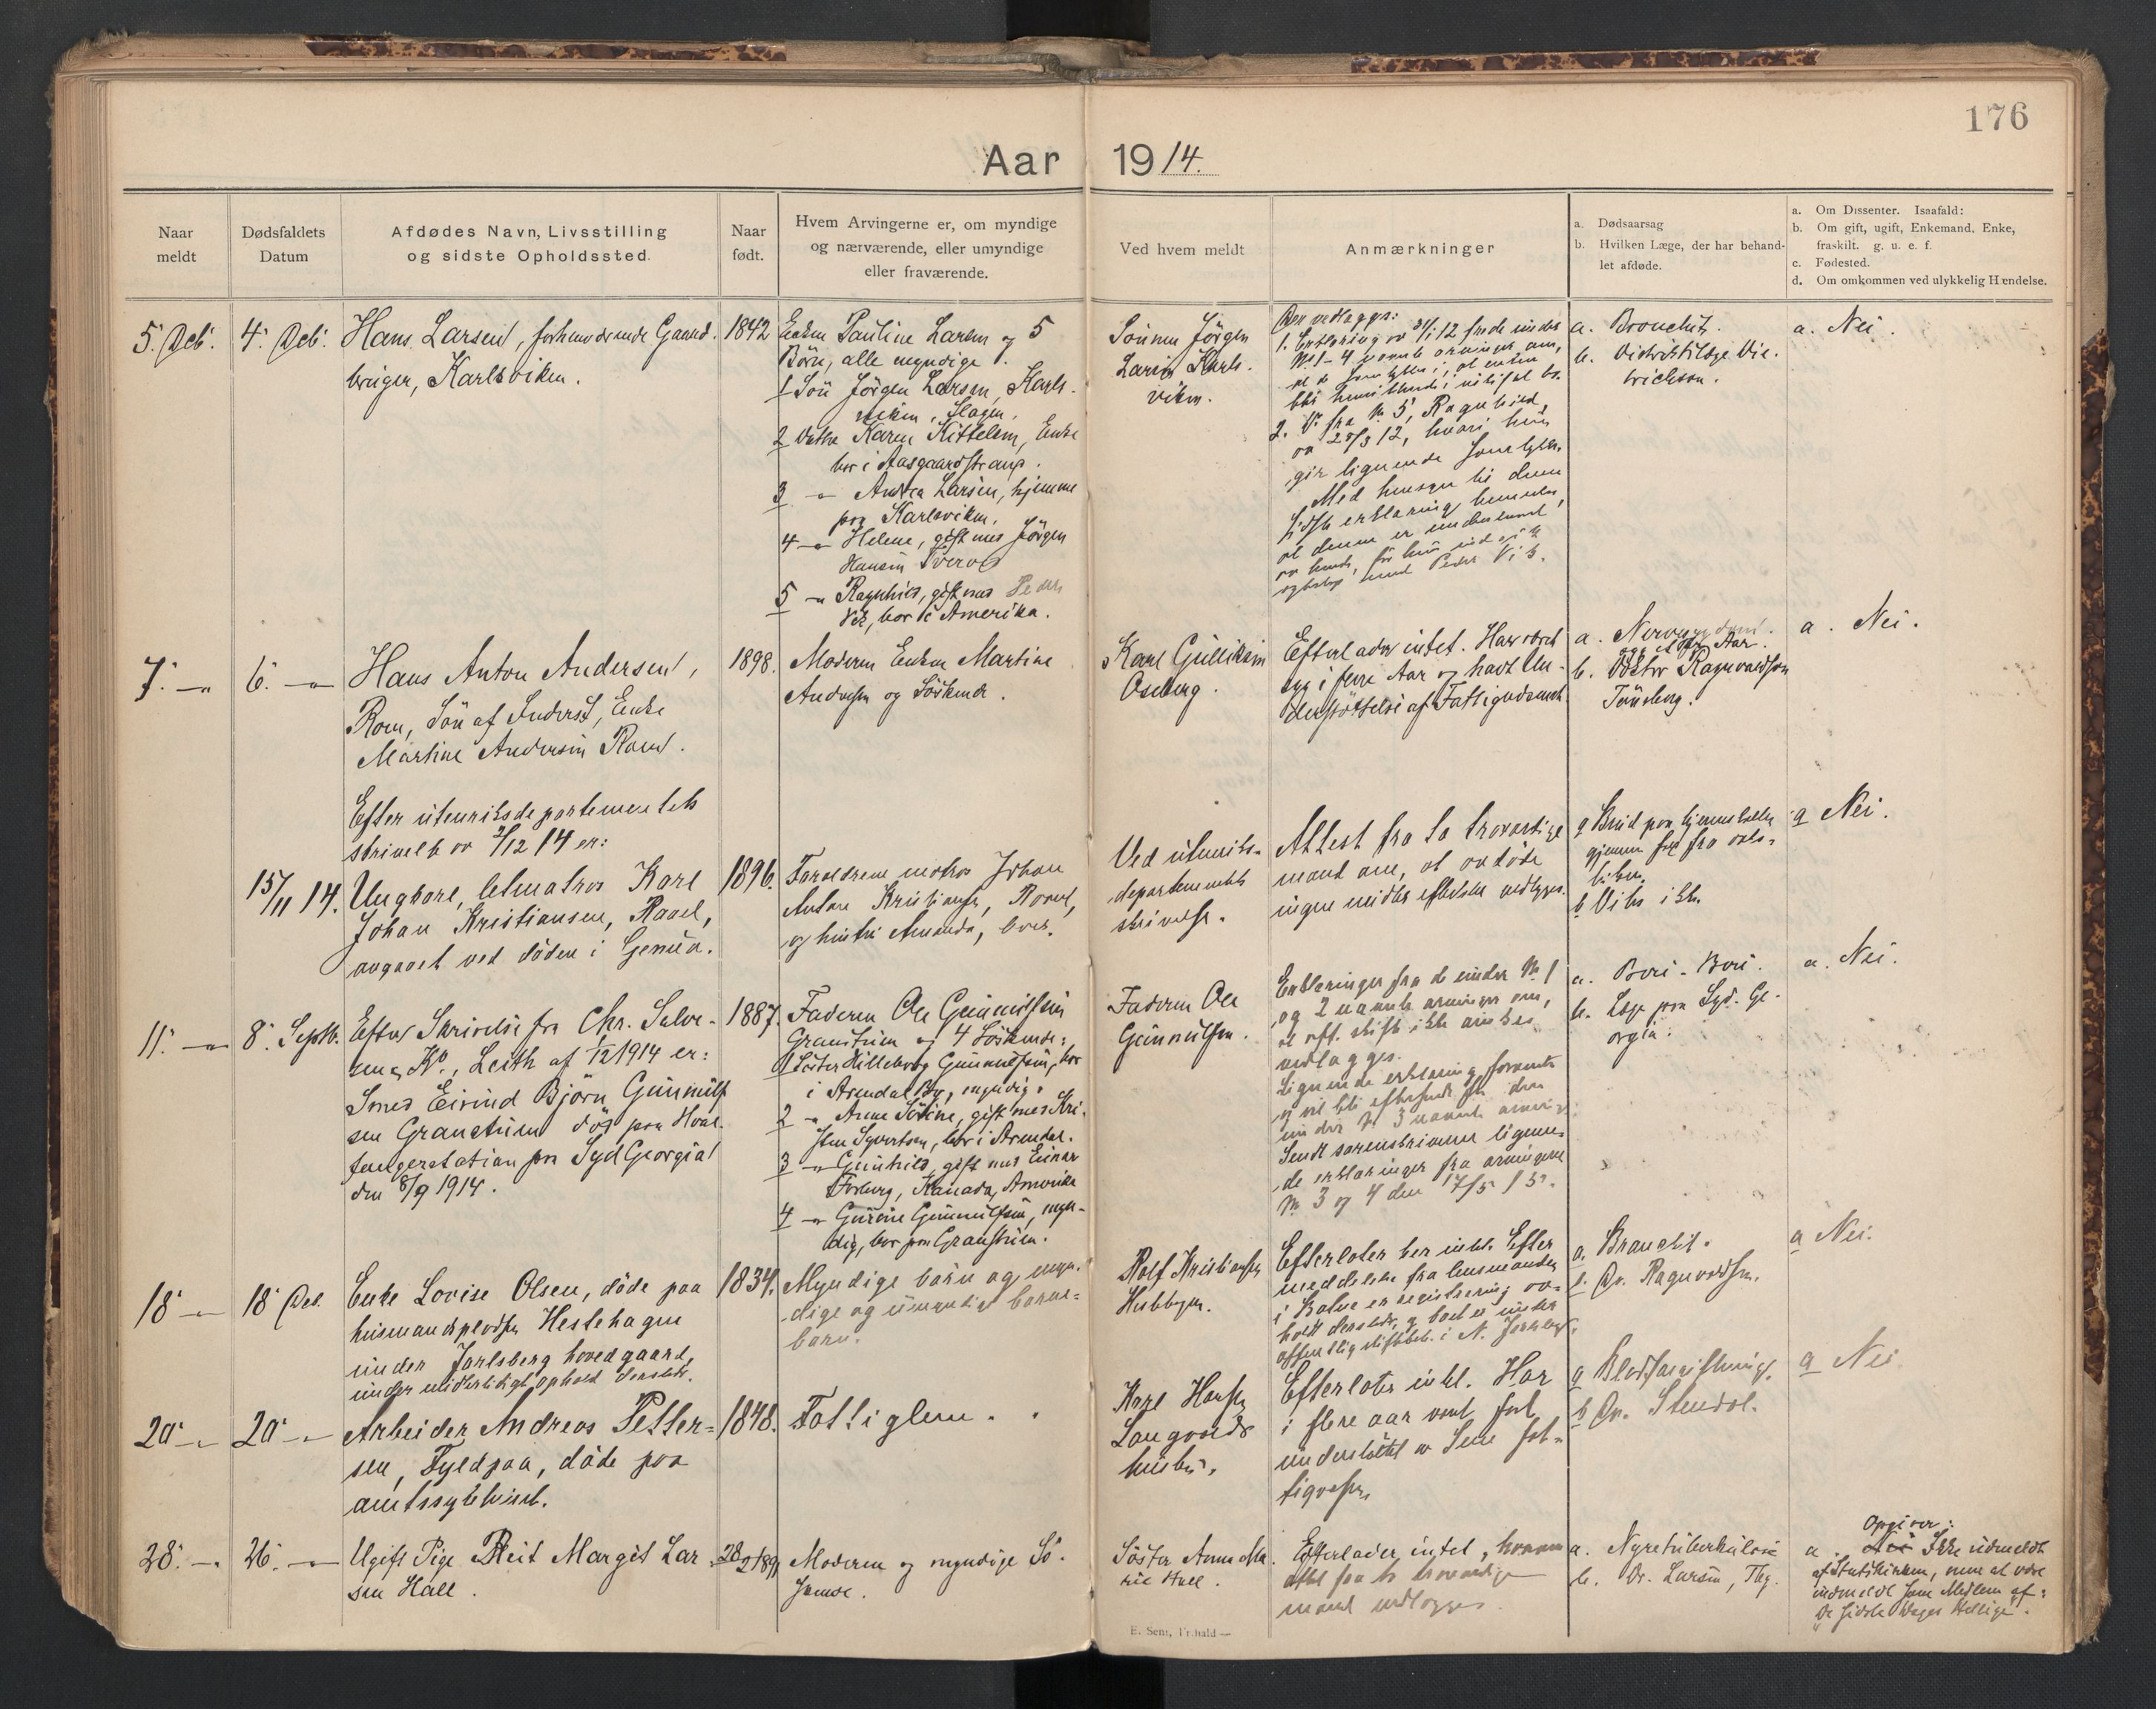 176
Aar 1914.
Naar meldt
Dødsfaldets Datum
Afdødes Navn, Livsstilling
og sidste Opholdssted.
Naar født.
Hvem Arvingerne er, om myndige
og nærværende, eller umyndige
eller fraværende.
Ved hvem meldt
Anmærkninger
a. Dødsaarsag
b. Hvilken Læge, der har behand-
let afdøde.
a. Om Dissenter. Isaafald:
b. Om gift, ugift, Enkemand, Enke,
fraskilt. g. u. e. f.
c. Fødested.
d. Om omkommen ved ulykkelig Hændelse.
5' Deb.
4' Deb.
Hans Larsen, forhenværende Gaard-
bruger, Karlsviken.
1842
Enken Pauline Larsen og 5
Börn, alle myndige.
1 Sön Jörgen Larsen, Karls-
viken, Slagen.
2 Datter Karen Kittelsen, Enke
bor i Aasgaardstrand.
3 -"- Andrea Larsen, hjemme
paa Karlsviken.
4 -"- Helene, gift med Jörgen
Hansen
5 -"- Ragnhild, gift med Peder
Vik, bor i Amerika.
Sönnen Jörgen
Larsen Karls-
viken.
Der vedlægges:
1. Erklæring av 31/12 fra de under
No 1-4 nævnte arvinger om,
2. Do fra No 5, Ragnhild,
av 28/3 12, hvori hun
gir lignende samtykke.
Med hensyn til denne
sidste erklæring bemerkes,
at denne er underskrevet
av hende, før hun indgik
egteskap med Peder Vik.
a. Bronchit.
b. Distriktslæge Die-
trichson.
a. Nei.
7' -"-
6. -"-
Hans Anton Andersen,
Rom, Sön af Inderst, Enke
Martine Andersen Rom.
1898.
Moderen Enken Martine
Andersen og Söskende.
Karl Gulliksen
Oseberg.
Efterlader intet. Har været
syg i flere Aar og havt Un-
derstöttelse af Fattigvæsenet.
a. Nervesygdom
b. Doktor Ragnvaldsen
Tönsberg.
a. Nei.
Efter utenriksdepartementets
skrivelse av 2/12 14 er:
15/11 14.
Ungkarl, letmatros Karl
Johan Kristiansen, Raael,
avgaaet ved döden i Genua.
1896.
Forældrene matros Johan
Anton Kristiansen, Raael,
og hustru Amanda, bor.
Ved utenriks-
departementets
skrivelse.
Attest fra to troværdige
mænd om, at avdöde
ingen midler efterlot vedlægges.
a Brud paa hjerneskallen
gjennem fald fra
b Vites ikke.
a Nei.
11' -"-
8' Septb.
Efter Skrivelse fra Chr. Salve-
sen & Ko., Leith af 1/12 1914 er:
Smed Eivind Björn Gunnulf-
sen Granstuen död paa Hval-
fangerstation paa Syd Georgia
den 8/9 1914.
1887.
Faderen Ole Gunnulfsen
Granstuen og 4 Söskende:
1 Söster Hilleborg Gunnulfsen, bor
i Arendal By, myndig.
2 -"- Anne Sörine, gift med Kri-
sten Syvertsen, bor i Arendal.
3 -"- Gunhild, gift med Einar
Forberg, Kanada, Amerika
4 -"- Gurine Gunnulfsen, myn-
dig, bor paa Granstuen.
Faderen Ole
Gunnulfsen.
Erklæringer fra de under No 1
og 2 nævnte arvinger om,
at off. skifte ikke önskes
vedlægges.
Lignende erklæring forventes
og vil bli eftersendt fra den
under No 3 nævnte arving.
Sendt sorenskriveren lignen-
de erklæringer fra arvingene
No 3 og 4 den 17/5 15.
a. Beri-Beri.
b. Læge paa Syd-Ge-
orgia.
a. Nei.
18' -"-
18' Des.
Enke Lovise Olsen, döde paa
husmandspladsen Hestehagen
under Jarlsberg hovedgaard,
under midlertidigt ophold dersteds.
1834.
Myndige barn og myn-
dige og umyndige barne-
barn.
Rolf Kristiansen
Husbbyen.
Efterlater her intet. Efter
meddelelse fra lensmanden
i Botne er registrering av-
holdt dersteds, og boet er under
offentlig skiftebeh. i N. Jarlsberg.
a. Bronchit.
b. Dr. Ragnvaldsen.
a Nei.
20' -"-
20' -"-
Arbeider Andreas Petter-
sen, Fyldpaa, döde paa
amtssykehuset.
1848.
Fattiglem.
Karl Hansen
Langvards
husby.
Efterlater intet. Har
i flere aar vært fast
understöttet av Sem fat-
tigvæsen.
a Blodforgiftning.
b Dr. Stendal.
a Nei.
28' -"-
26. -"-
Ugift Pige Reit Margit Lar-
sen Hall.
28/2 1891
Moderen og myndige Sö-
skende.
Söster Anna Ma-
rie Hall.
Efterlader intet, hvorom
attest fra to troværdige
mænd vedlægges.
a. Nyretuberkulose
b. Dr. Larsen, Tbg.
Opgiver:
a. Nei Ikke udmeldt
af Statskirken, men at være
indmeldt som Medlem af:
"De sidste Dages Hellige".
E. Sem, Fr.hald —